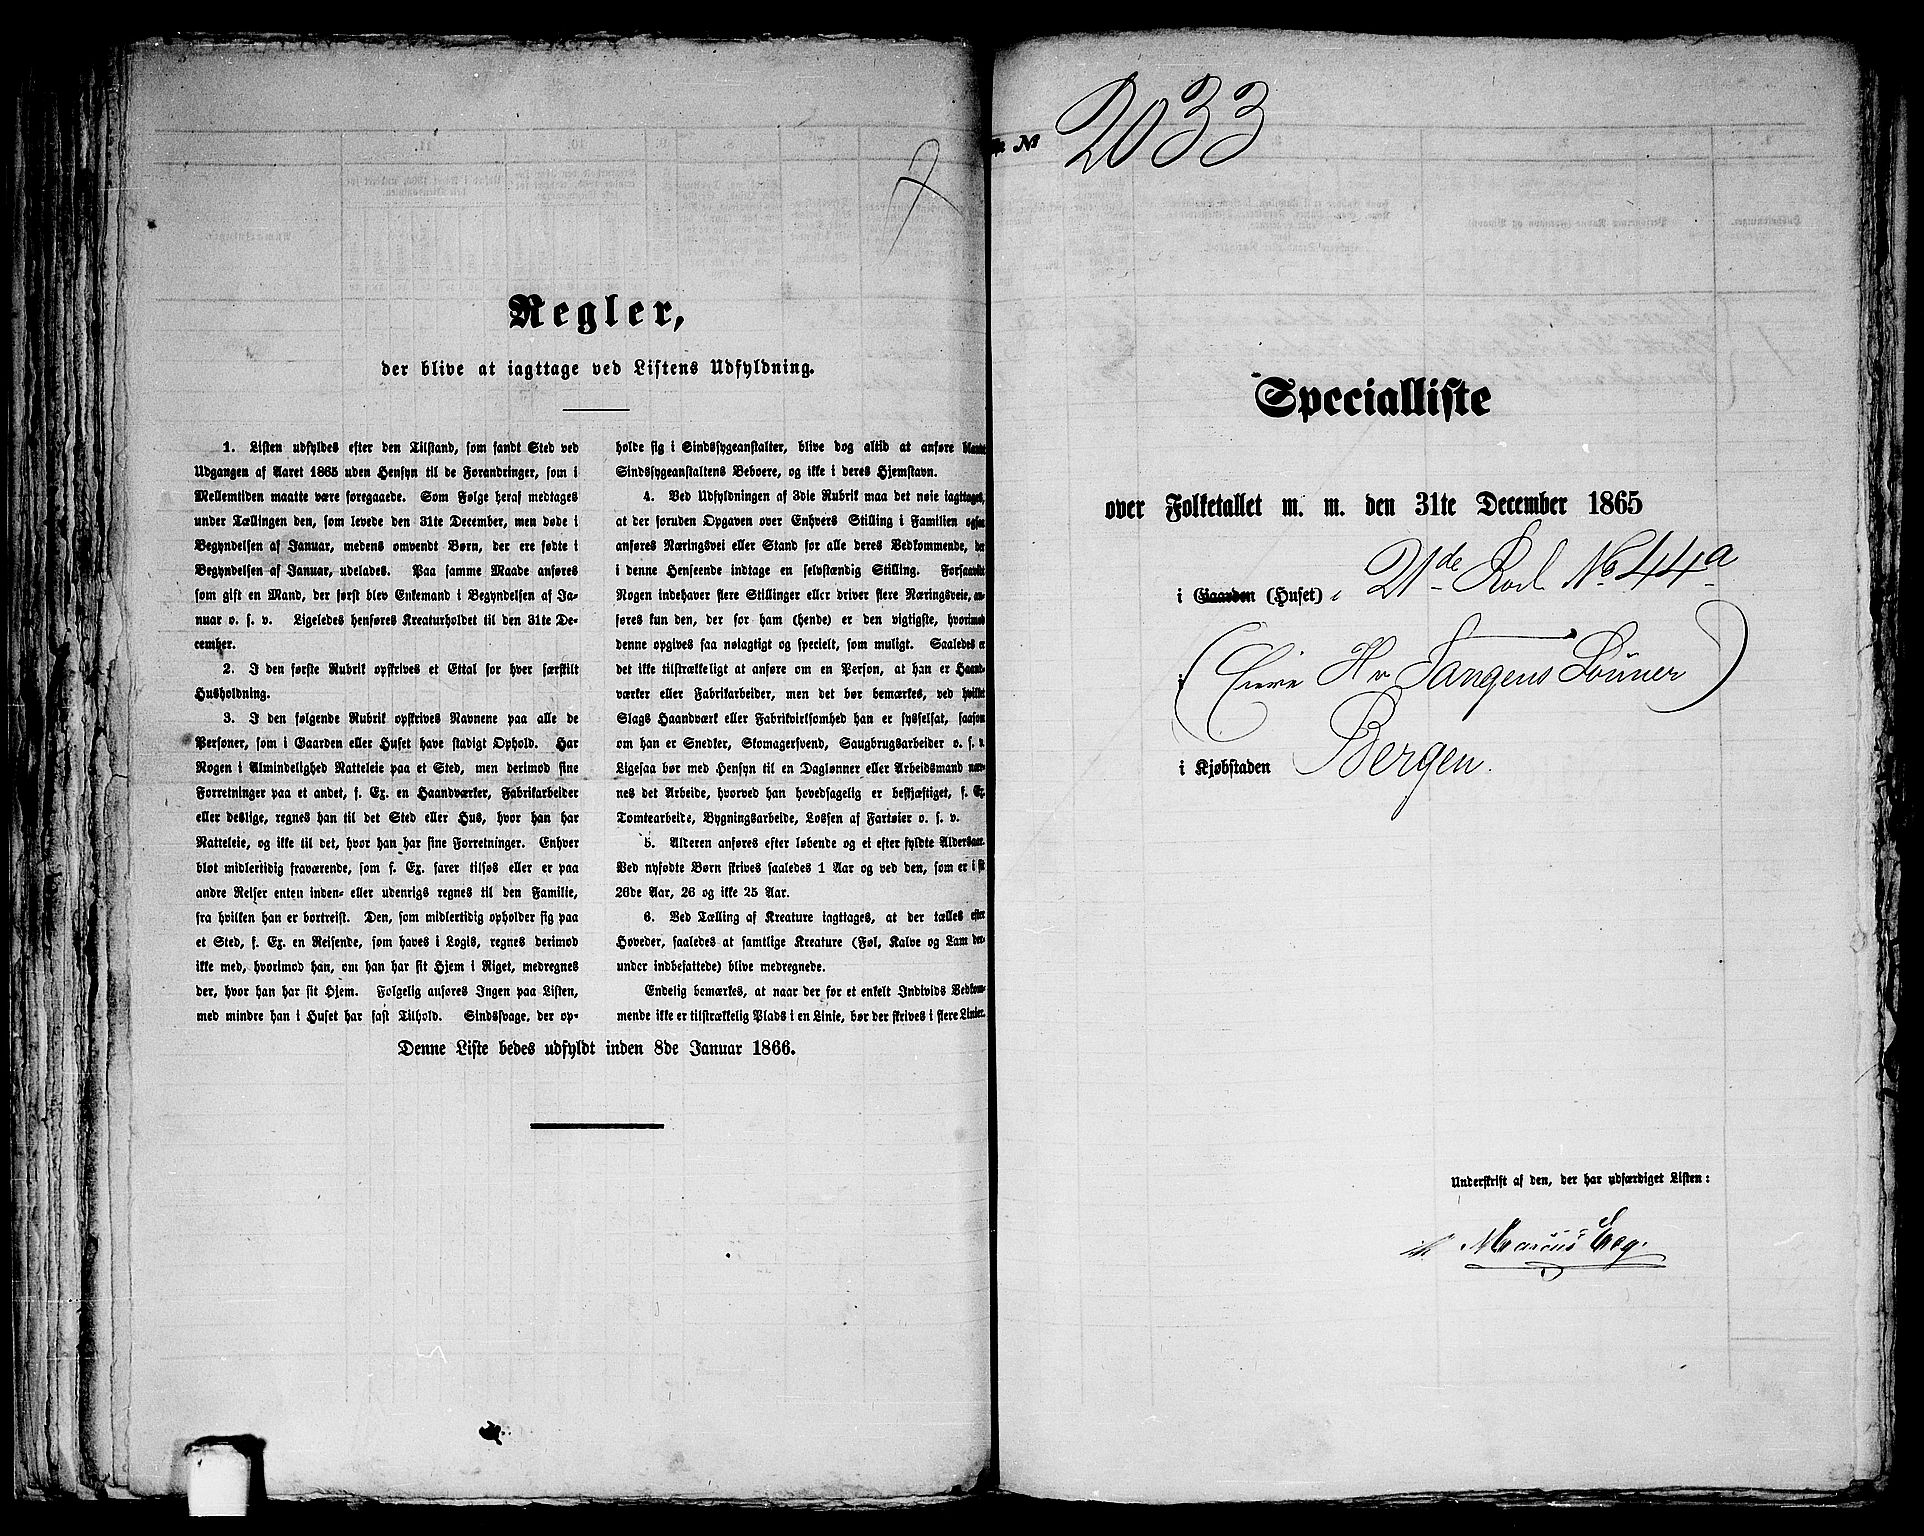 7
Regler,
der blive at iagttage ved Listens Udfyldning.
1. Listen udfyldes efter den Tilstand, som fandt Sted ved
Udgangen af Aaret 1865 uden Hensyn til de Forandringer, som i
Mellemtiden maatte være foregaaede. Som Følge heraf medtages
under Tællingen den, som levede den 31te December, men døde i
Begyndelsen af Januar, medens omvendt Børn, der ere fødte i
Begyndelsen af Januar, udelades. Paa samme Maade anføres
som gift en Mand, der først blev Enkemand i Begyndelsen af Ja-
nuar o. s. v. Ligeledes henføres Kreaturholdet til den 31te De-
cember.
2. I den første Rubrik opskrives et Ettal for hver særskilt
Husholdning.
3. I den følgende Rubrik opskrives Navnene paa alle de
Personer, som i Gaarden eller Huset have stadigt Ophold. Har
Nogen i Almindelighed Natteleie paa et Sted, men derimod sine
Forretninger paa et andet, f. Ex. en Haandværker, Fabrikarbeider
eller deslige, regnes han til det Sted eller Hus, hvor han har
Natteleie, og ikke til det, hvor han har sine Forretninger. Enhver
blot midlertidig fraværende, som f. Ex. farer tilsøs eller er paa
andre Reiser enten inden- eller udenrigs regnes til den Familie,
fra hvilken han er bortreist. Den, som midlertidig opholder sig paa
et Sted, f. Ex. en Reisende, som haves i Logis, regnes derimod
ikke med, hvorimod han, om han har sit Hjem i Riget, medregnes
der, hvor han har sit Hjem. Folgelig anføres Ingen paa Listen,
med mindre han i Huset har fast Tilhold. Sindssvage, der op-
holde sig i Sindssygeanstalter, blive dog altid at anføre blandt
Sindssygeanstaltens Beboere, og ikke i deres Hjemstavn.
4. Ved Udfyldningen af 3die Rubrik maa det nøie iagttages,
at der foruden Opgaven over Enhvers Stilling i Familien ogsaa
anføres Næringsvei eller Stand for alle deres Vedkommende, der
i denne Henseende indtage en selvstændig Stilling. Forsaavidt
Nogen indehaver flere Stillinger eller driver flere Næringsveie, an-
føres kun den, der for ham (hende) er den vigtigste, hvorimod
denne opgives saa nøiagtigt og specielt, som muligt. Saaledes er
det ikke tilstrækkeligt at anføre om en Person, at han er Haand-
værker eller Fabrikarbeider, men det bør bemærkes, ved hvilket
Slags Haandværk eller Fabrikvirksomhed han er sysselsat, saasom
om han er Snedker, Skomagersvend, Saugbrugsarbeider o. s. v.
Ligesaa bør med Hensyn til en Daglønner eller Arbeidsmand næv-
nes det Arbeide, hvorved han hovedsagelig er beskjæftiget, f. Ex.
Tomtearbeide, Bygningsarbeide, Lossen af Fartøier o. s. v.
5. Alderen anføres efter løbende og ei efter fyldte Aldersaar.
Ved nyfødte Børn skrives saaledes 1 Aar og ved den, som er i sit
26de Aar, 26 og ikke 25 Aar.
6. Ved Tælling af Kreature iagttages, at der tælles efter
Hoveder, saaledes at samtlige Kreature (Føl, Kalve og Lam der-
under indbefattede) blive medregnede.
Endelig bemærkes, at naar der for et enkelt Individs Vedkom-
mende ikke er tilstrækkelig Plads i en Linie, bør der skrives i flere Linier.
Denne Liste bedes udfyldt inden 8de Januar 1866.
№ 2033
Specialliste
over Folketallet m. m. den 31te December 1865
i Gaarden (Huset) 21de Rode No 44a
(Eiere Hr Tangens Sønner)
i Kjøbstaden Bergen.
Underskrift af den, der har udfærdiget Listen:
Marcus Eeg.